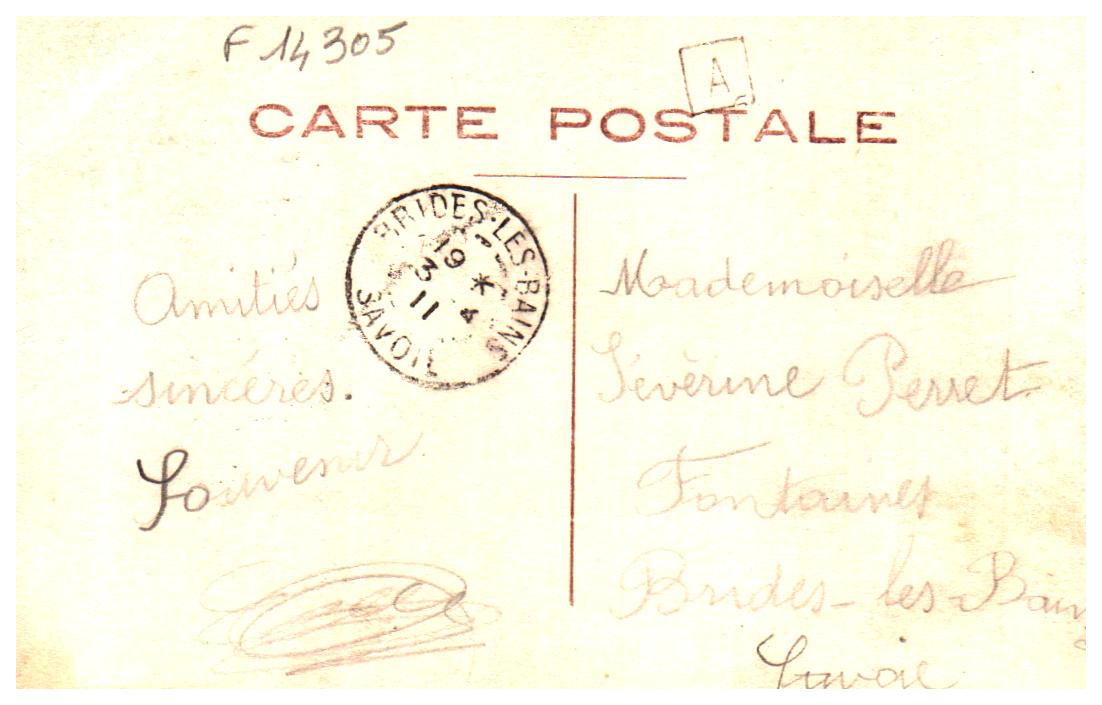 F 14305
A
CARTE POSTALE
BRIDES-LES-BAINS
19 *
3 4
11
SAVOIE
Amitiés
sincères.
Souvenir
Mademoiselle
Sévèrine Perret
Fontaines
Brides-les-Bains
Savoie